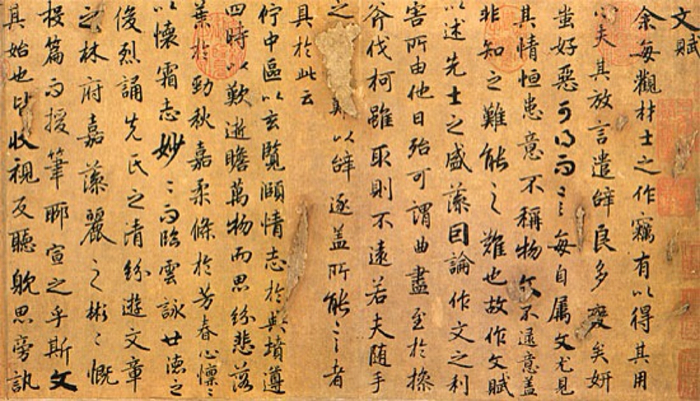 文賦
余每觀材士之作竊有以得其用
心夫其放言遣辭良多變矣妍
蚩好惡可得而言每自属文尤見
其情恒患意不稱物文不逮意盖
非知之難能之難也故作文賦
以述先士之盛藻因論作文之利
害所由他日殆可謂曲盡至於操
斧伐柯雖取則不遠若夫隨手
之難以辭逐盖所能言者
具於此云
佇中區以玄覽頤情志於典墳遵
四時以歎逝瞻萬物而思紛悲落
葉於勁秋嘉柔條於芳春心懍〻
以懷霜志妙〻而臨雲詠世德之
俊烈誦先民之清紛遊文章
之林府嘉藻麗之彬〻慨
投篇而援筆聊宣之乎斯文
其始也皆收視反聽耽思旁訊